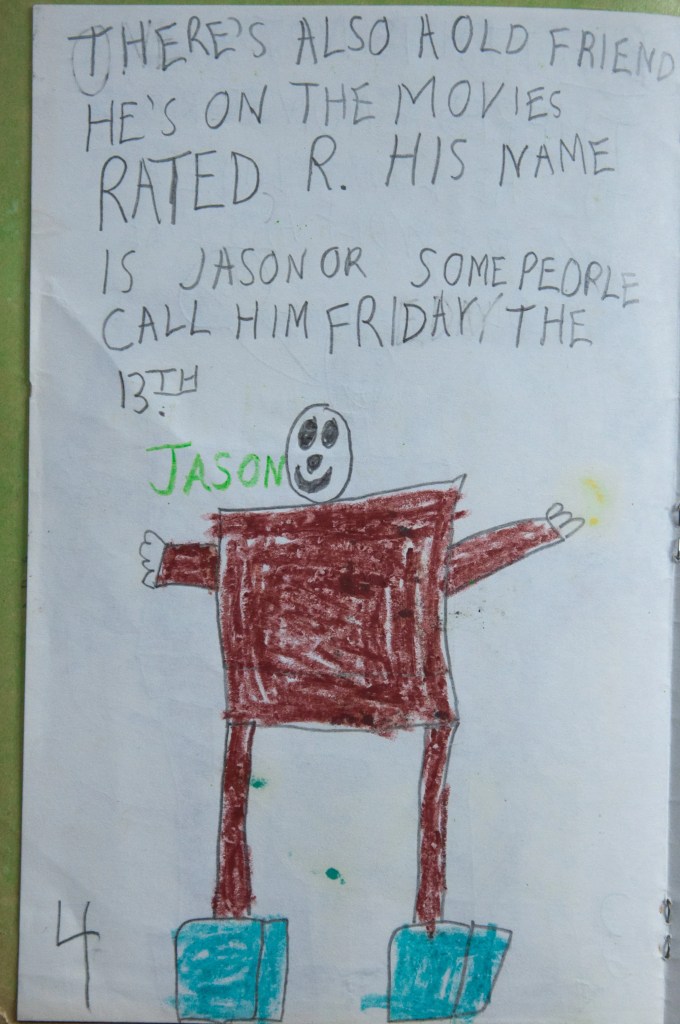 THERE'S ALSO A OLD FRIEND
HE'S ON THE MOVIES
RATED R. HIS NAME
IS JASON OR SOME PEOPLE
CALL HIM FRIDAY THE
13.TH
JASON
4